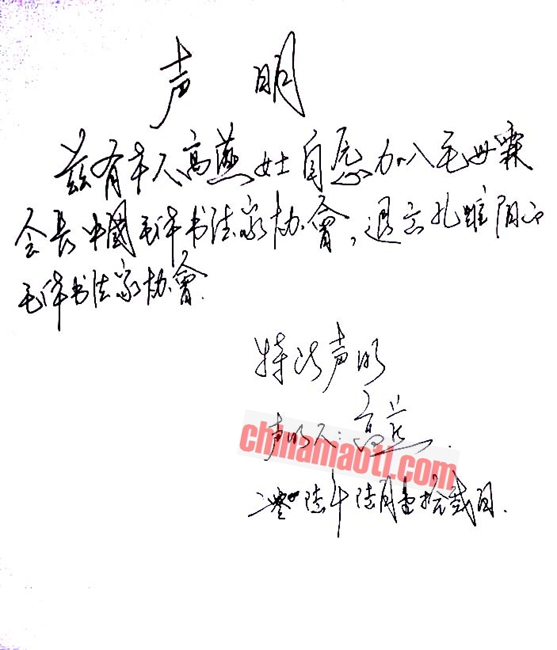 声 明
兹有本人高燕女士自愿加入毛世霖
会长中國毛体书法家协會,退出孔雎阳的
毛体书法家协會.
特此声明
声明人:高燕.
chinamaoti.com
二零零陆年陆月壹拾贰日.